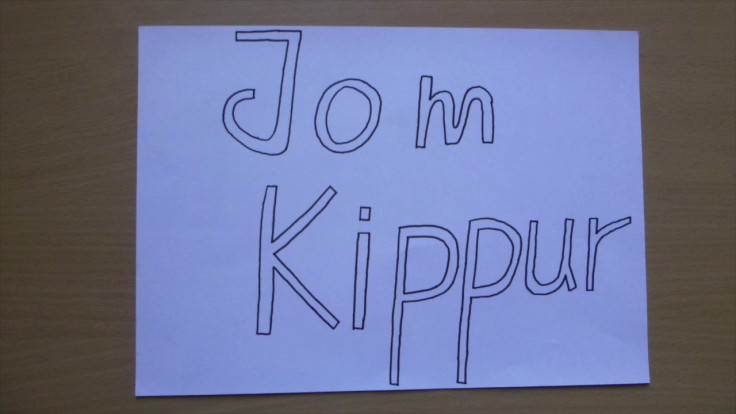 Jom
Kippur